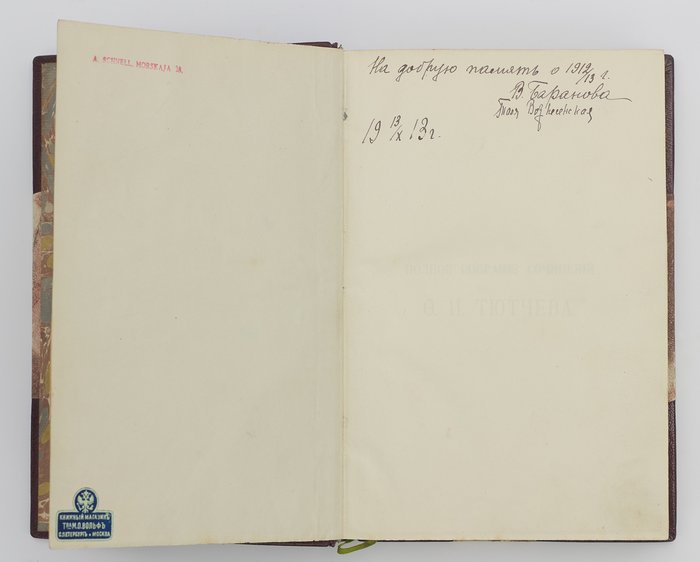 A. SCHNELL, MORSKAJA 28.
КНИЖНЫЙ МАГАЗИНЪ
Тва М.О. ВОЛЬФЪ
С.ПЕТЕРБУРГЪ и МОСКВА
На добрую память о 1912/13 г.
В. Баранова
Вознесенская
19 13/X 13 г.
ПОЛНОЕ СОБРАНІЕ СОЧИНЕНІЙ
Ѳ. И. ТЮТЧЕВА.